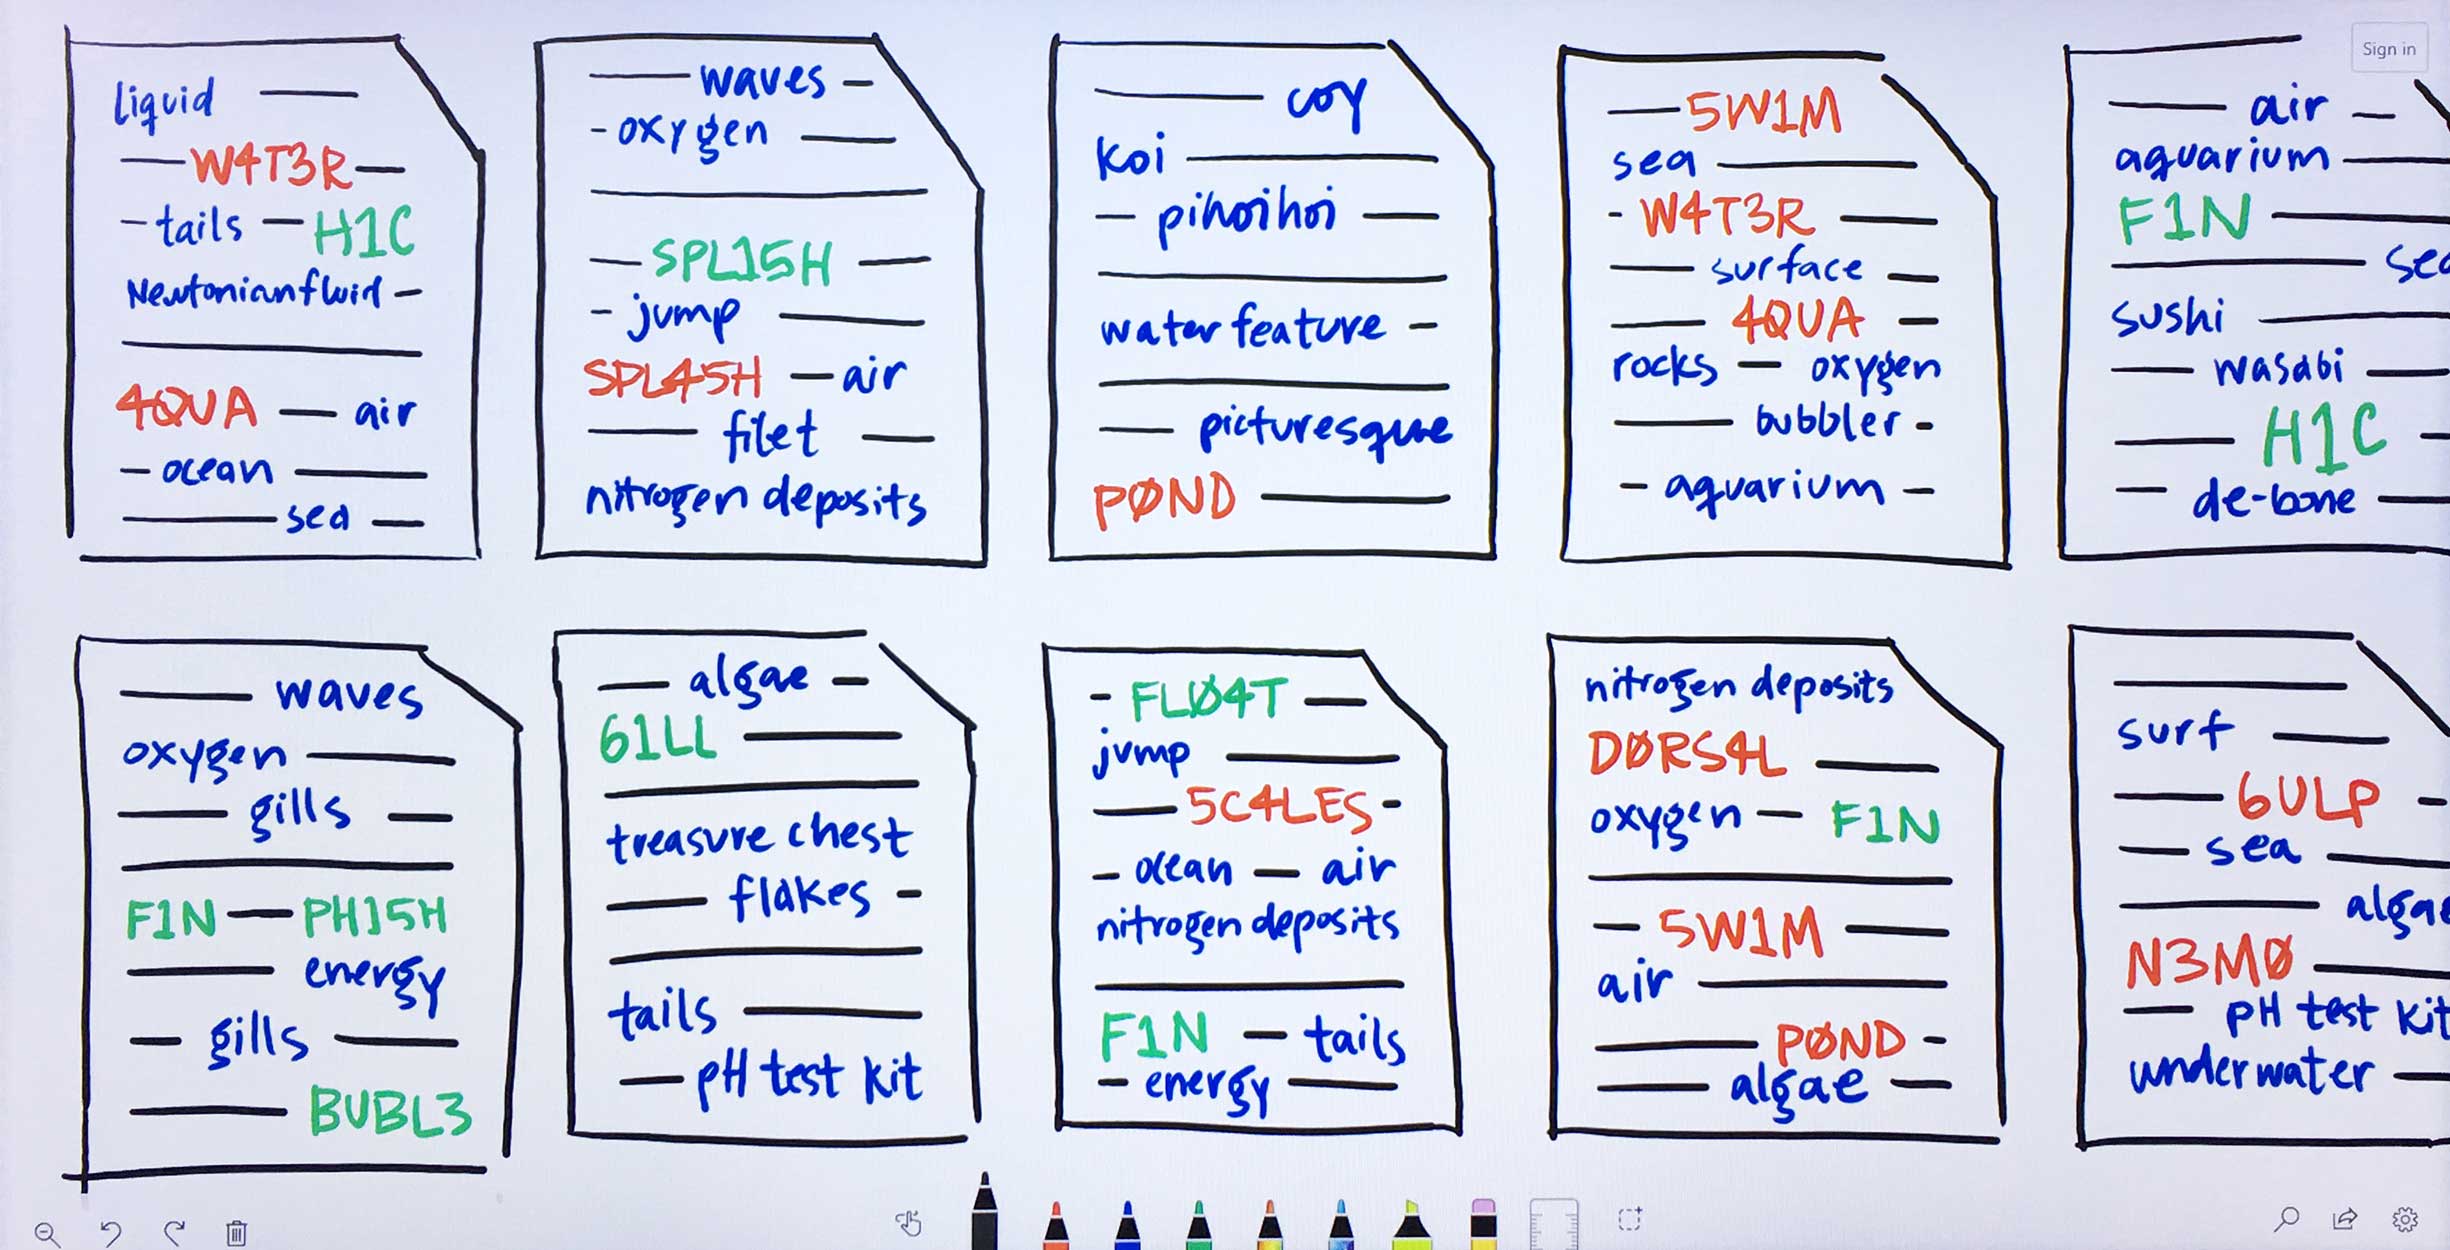 Sign in
liquid
W4T3R
tails H1C
Newtonianfluid
4QUA air
ocean
sea
waves
oxygen
SPL15H
jump
SPL45H air
filet
nitrogen deposits
coy
Koi
pihoihoi
water feature
picturesque
PØND
5W1M
sea
W4T3R
surface
4QUA
rocks oxygen
bubbler
aquarium
air
aquarium
F1N
sea
sushi
wasabi
H1C
de-bone
waves
oxygen
gills
F1N PH15H
energy
gills
BUBL3
algae
61LL
treasure chest
flakes
tails
pH test kit
FLØ4T
jump
5C4LES
ocean air
nitrogen deposits
F1N tails
energy
nitrogen deposits
DØRS4L
oxygen F1N
5W1M
air
PØND
algae
surf
6ULP
sea
algae
N3MØ
pH test kit
underwater